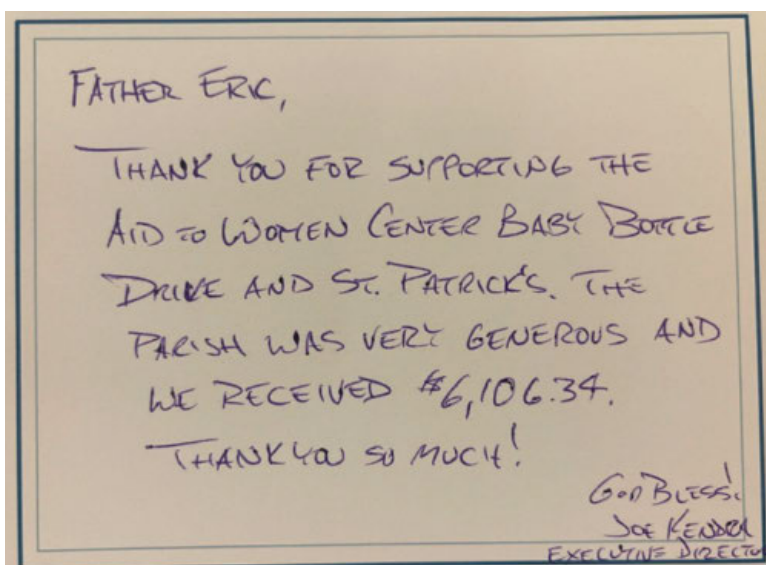 FATHER ERIC,
THANK YOU FOR SUPPORTING THE
AID TO WOMEN CENTER BABY BOTTLE
DRIVE AND ST. PATRICK'S. THE
PARISH WAS VERY GENEROUS AND
WE RECEIVED $6,106.34.
THANK YOU SO MUCH!
GOD BLESS!
JOE KENDRA
EXECUTIVE DIRECTO